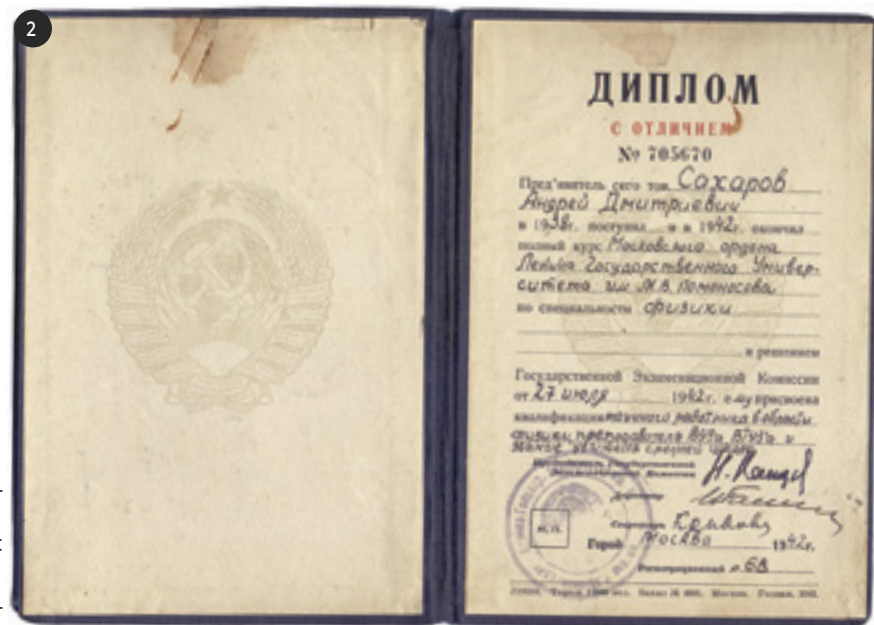 2
ДИПЛОМ
С ОТЛИЧИЕМ
№ 705670
Пред'явитель сего тов. Сахаров
Андрей Дмитриевич
в 1938г. поступил и в 1942г. окончил
полный курс Московского ордена
Ленина Государственного Универ-
ситета им М.В. Ломоносова
по специальности физики
и решением
Государственной Экзаменационной Комиссии
от 27 июля 1942г. ему присвоена
квалификация научного работника в области
физики преподавателя ВУЗа ВТУЗа и
звание учителя средней школы
Председатель Государственной
Экзаменационной Комиссии
Директор
Секретарь
М. П.
Город Москва 1942г.
Регистрационный №